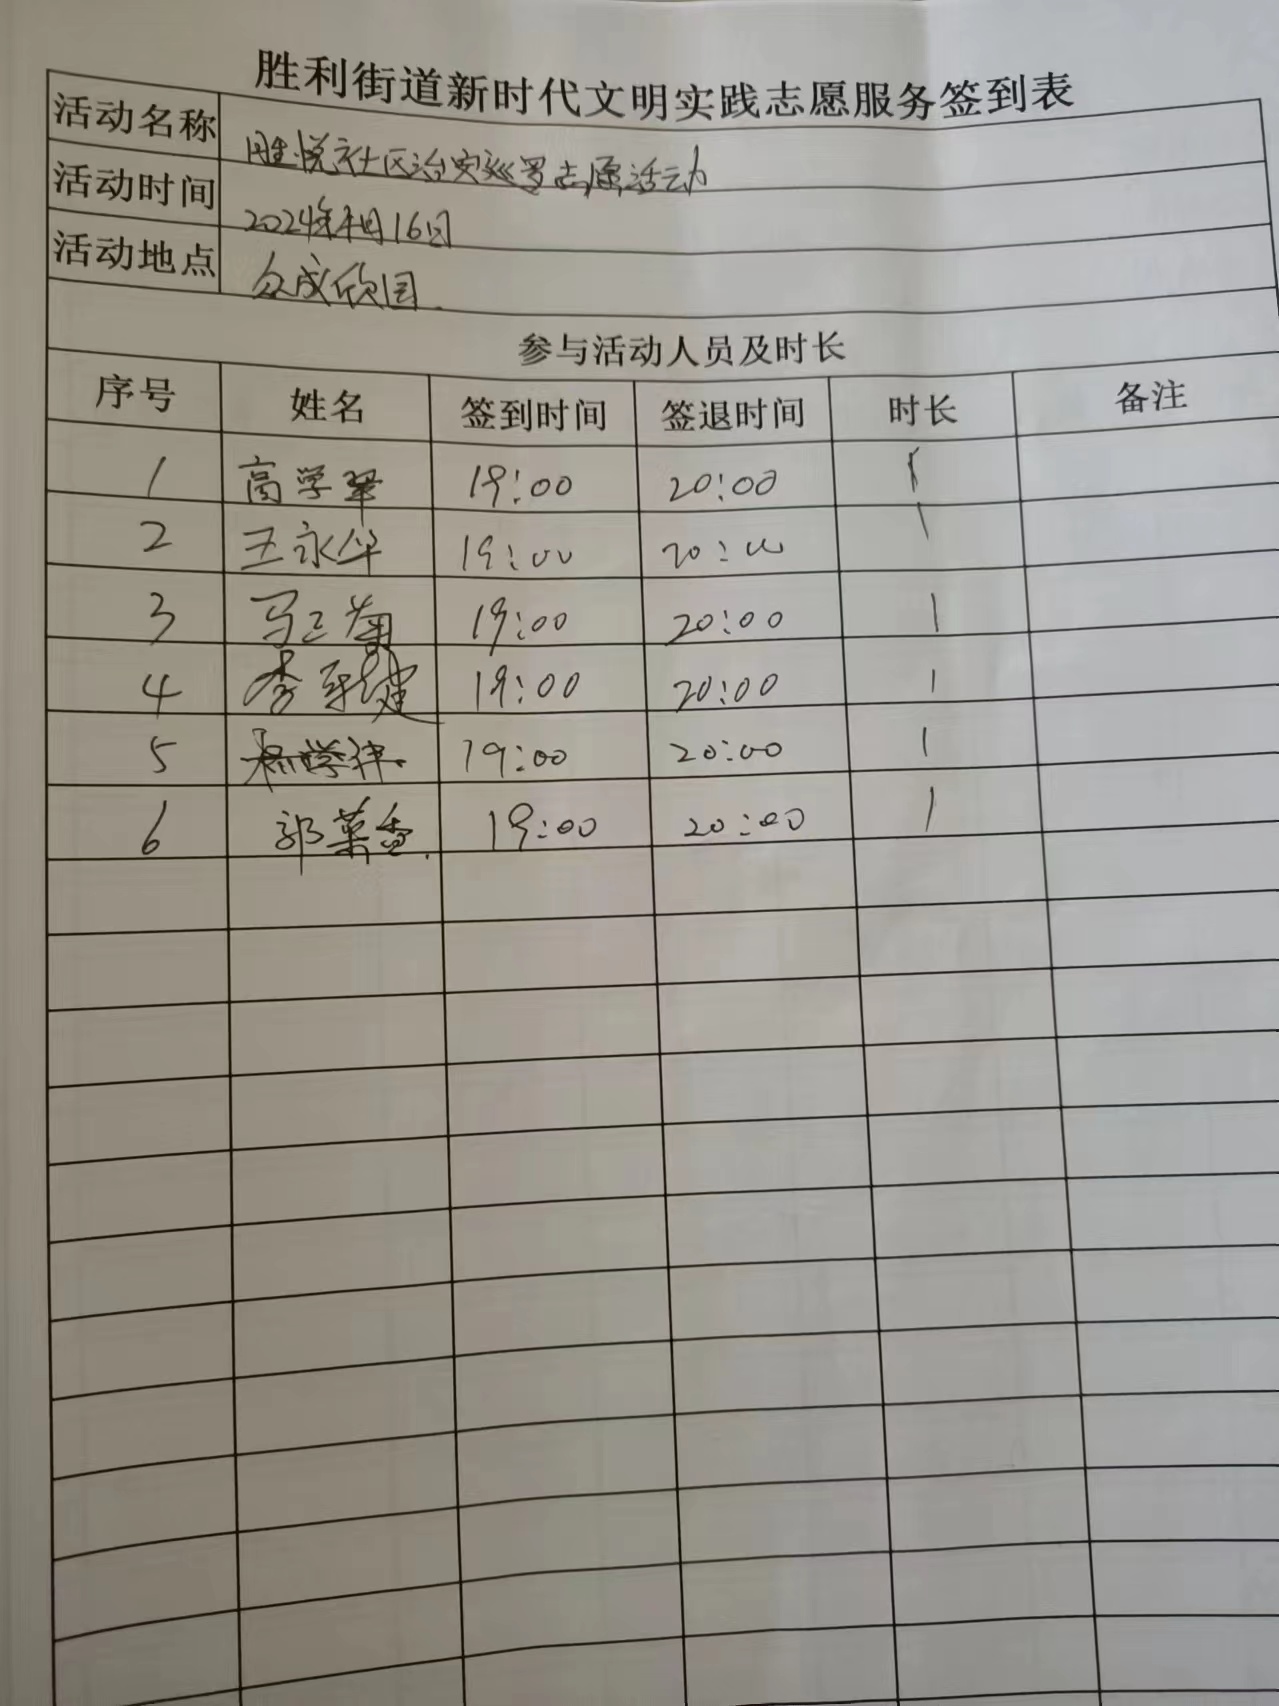 胜利街道新时代文明实践志愿服务签到表
活动名称 胜悦社区治安巡逻志愿活动
活动时间 2024年4月16日
活动地点 众成欣园
参与活动人员及时长
序号 姓名 签到时间 签退时间 时长 备注
1 高学翠 19:00 20:00 1
2 王永华 19:00 20:00 1
3 马兰菊 19:00 20:00 1
4 李 健 19:00 20:00 1
5 杨学津 19:00 20:00 1
6 郭菊香 19:00 20:00 1